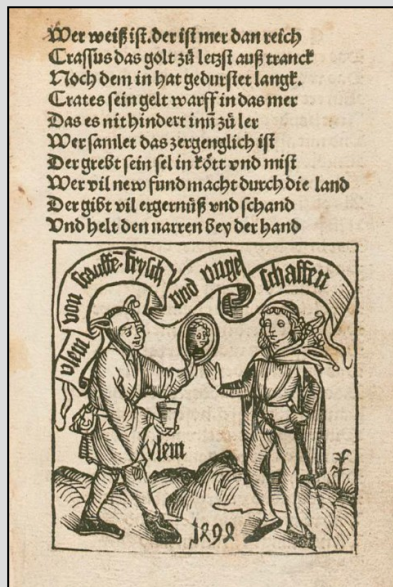 Wer weiß ist.der ist mer dan reich
Crassus das golt zů letzst auß tranck
Noch dem in hat gedurstet langk.
Crates sein gelt warff in das mer
Das es nit hindert inn zů ler
Wer samlet das zergenglich ist
Der grebt sein sel in kott vnd mist
Wer vil new fund macht durch die land
Der gibt vil ergernüß vnd schand
Vnd helt den narren bey der hand
vlem von stauffe- frysch vnd vnge schaffen
vlem
1292